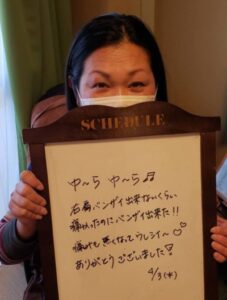 SCHEDULE
ゆ〜ら ゆ〜ら♬
右肩バンザイ出来ないくらい
痛かったのにバンザイ出来た!!
痛みも無くなってウレシイ〜♡♡
ありがとうございました!
4/3(木)